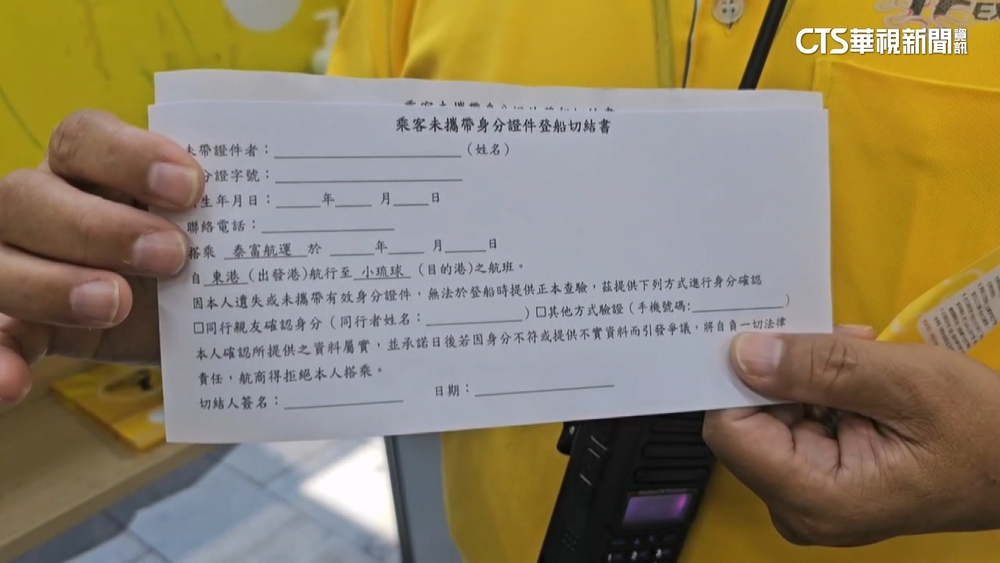 CTS華視新聞資訊
EX
乘客未攜帶身分證件登船切結書
未帶證件者：（姓名）
分證字號：
生年月日：年 月 日
聯絡電話：
搭乘 泰富航運 於 年 月 日
自 東港（出發港）航行至 小琉球（目的港）之航班。
因本人遺失或未攜帶有效身分證件，無法於登船時提供正本查驗，茲提供下列方式進行身分確認
□同行親友確認身分（同行者姓名：）□其他方式驗證（手機號碼:）
本人確認所提供之資料屬實，並承諾日後若因身分不符或提供不實資料而引發爭議，將自負一切法律
責任，航商得拒絕本人搭乘。
切結人簽名： 日期：